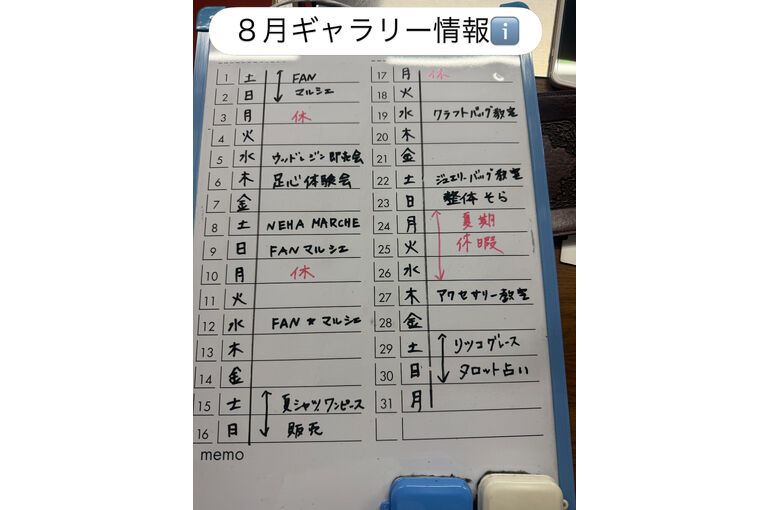 8月ギャラリー情報ℹ️
1 土 FAN
2 日 マルシェ
3 月 休
4 火
5 水 ウッドレジン即売会
6 木 足心体験会
7 金
8 土 NEHA MARCHE
9 日 FANマルシェ
10 月 休
11 火
12 水 FAN★マルシェ
13 木
14 金
15 土 夏シャツワンピース
16 日 販売
memo
17 月 休
18 火
19 水 クラフトバッグ教室
20 木
21 金
22 土 ジュエリーバッグ教室
23 日 整体そら
24 月 夏期
25 火 休暇
26 水
27 木 アクセサリー教室
28 金
29 土 リツコグレース
30 日 タロット占い
31 月